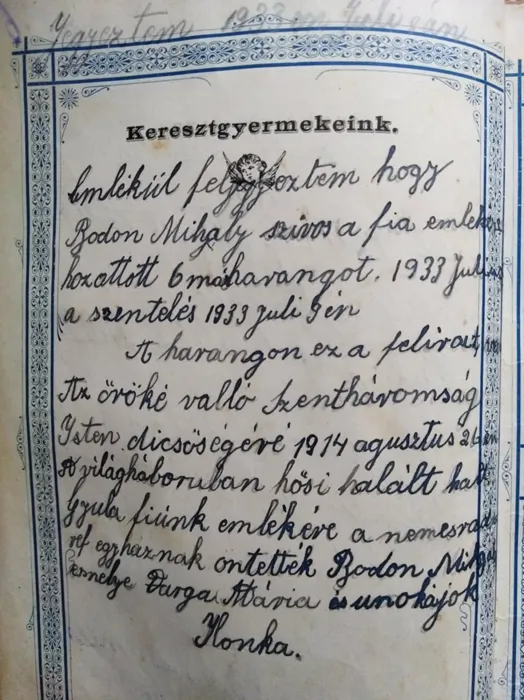 Jegyeztem 1933 Juli
Keresztgyermekeink.
Emlékül feljegyeztem hogy
Bodon Mihály szivos a fia emlék
hozattott 6 mázsa harangot. 1933 Juli
a szentelés 1933 Juli 9én
A harangon ez a felirat
Az öröké valló Szentháromság
Isten dicsöségéré 1914 agusztus 26
A világháboruban hősi halált halt
Gyula fiúnk emlékére a nemesrad
ref egyháznak öntették Bodon Mih
ésneje Varga Mária és unokájok
Ilonka.